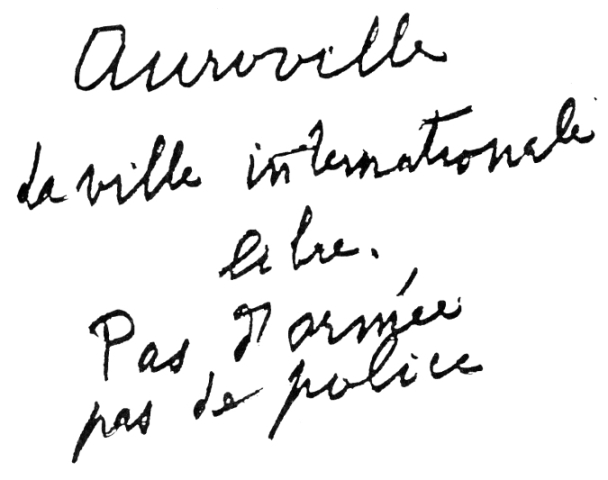 Auroville
La ville internationale
libre.
Pas d'armée
pas de police